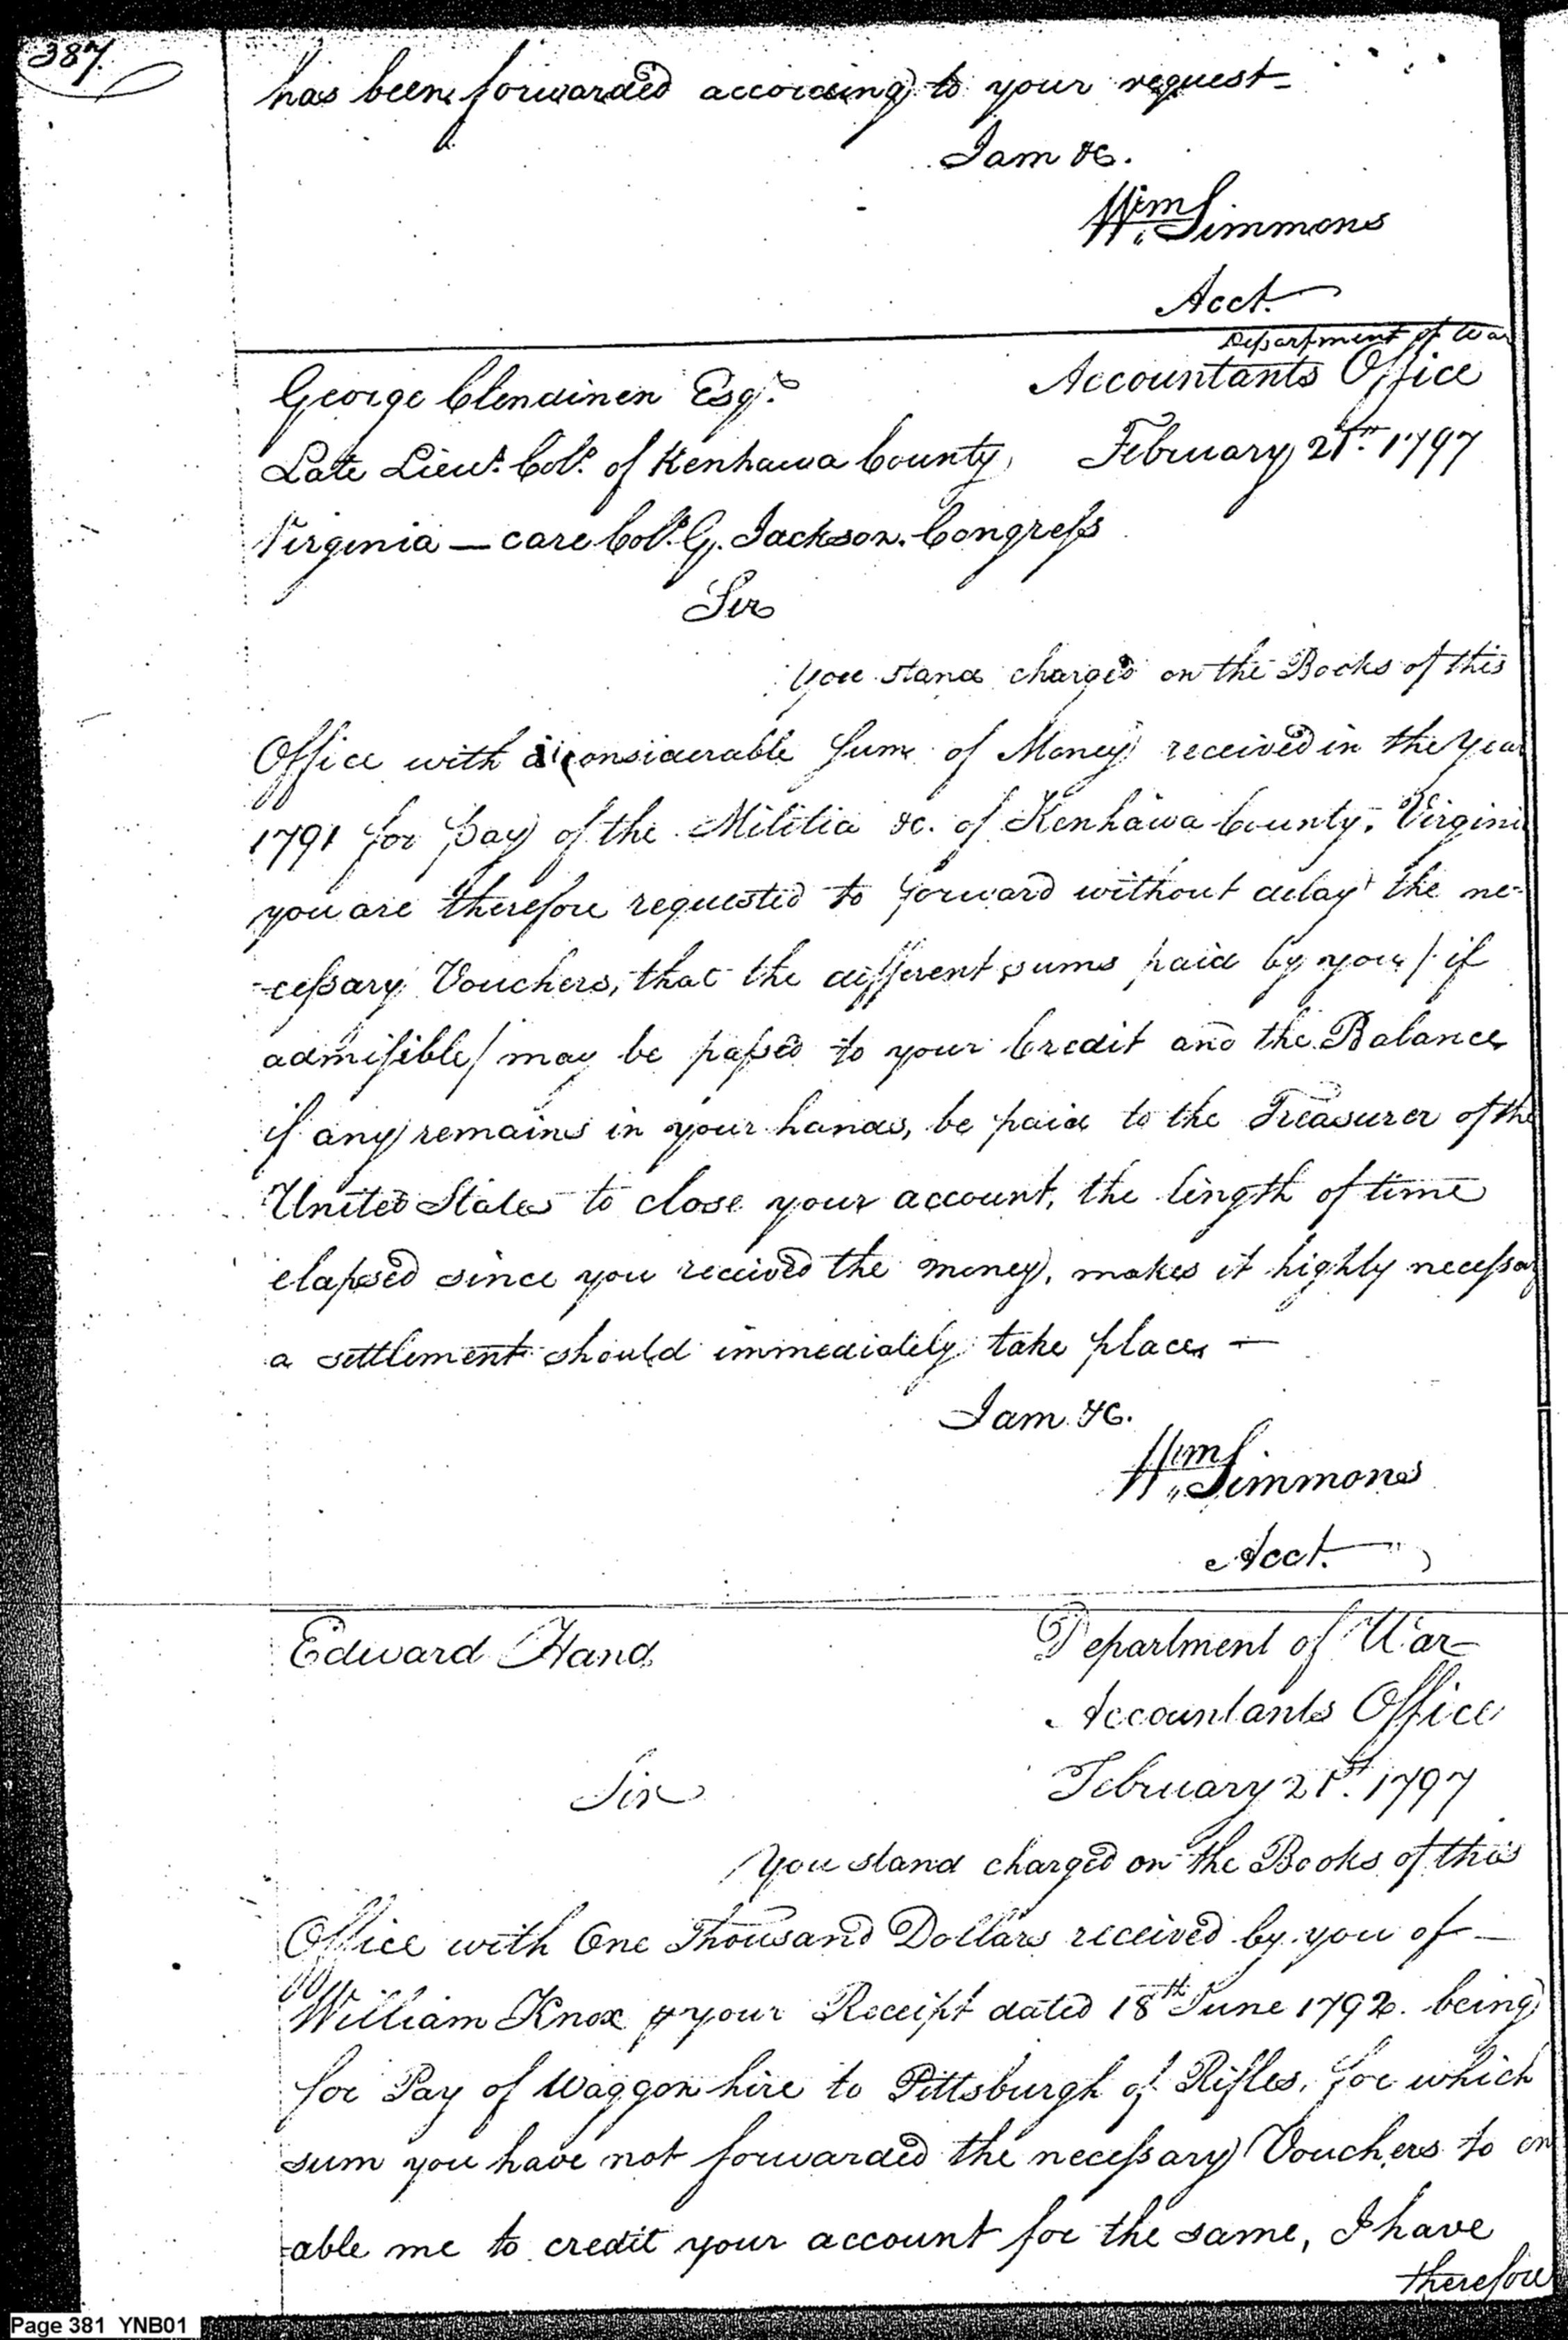 387.
has been forwarded according to your request–
I am &c.
Wm Simmons
Acct.
Department of War
Accountants Office
George Clendinen Esqr.
Late Lieut. Colo. of Kenhawa County, February 21st. 1797
Virginia — care Colo. G. Jackson. Congress
Sir
You stand charged on the Books of this
Office with a considerable Sum of Money received in the Year
1791 for pay of the Militia &c. of Kenhawa County. Virginia
you are therefore requested to forward without delay the ne-
-cessary Vouchers, that the different sums paid by you / if
admissible / may be passed to your Credit and the Balance
if any remains in your hands, be paid to the Treasurer of the
United States to close your account, the length of time
elapsed since you received the money, makes it highly necessary
a settlement should immediately take place. —
I am &c.
Wm Simmons
Acct.
Edward Hand
Department of War–
Accountants Office
February 21st. 1797
Sir
You stand charged on the Books of this
Office with One Thousand Dollars received by you of —
William Knox & your Receipt dated 18th June 1792. being
for Pay of Waggon hire to Pittsburgh of Rifles, for which
sum you have not forwarded the necessary Vouchers to en
-able me to credit your account for the same, I have
therefore
Page 381 YNB01